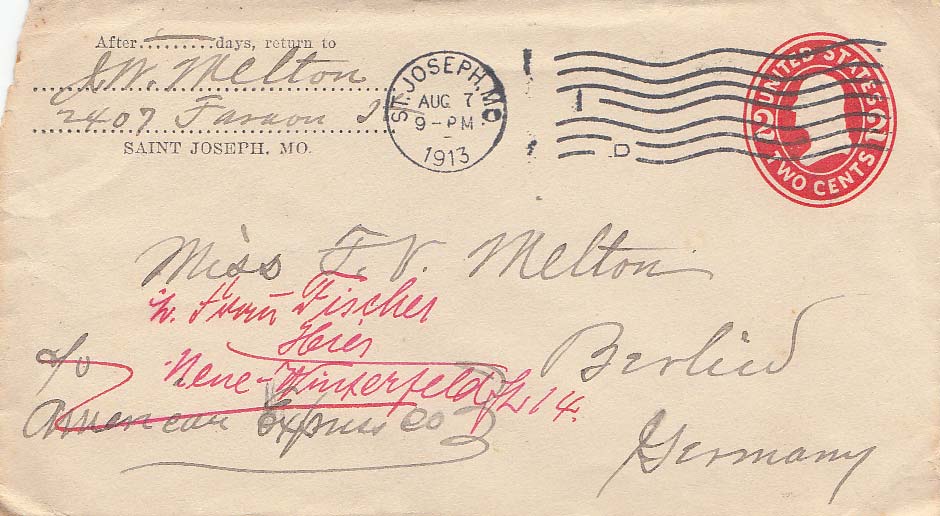 After.........days, return to
J.W. Melton
2407 Faraon St
SAINT JOSEPH, MO.
ST. JOSEPH, MO.
AUG 7
9-PM
1913
D
UNITED STATES
2 2
TWO CENTS
Miss F. V. Melton
Frau Fischer
Hier
Neue-Winterfeldstr. 14.
c/o
American Express Co
Berlin
Germany